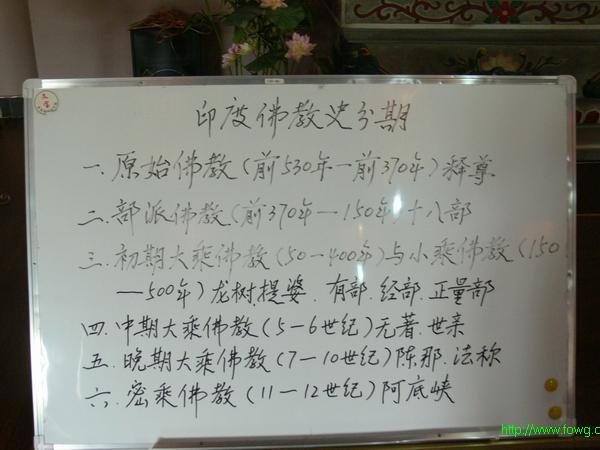 印度佛教史分期
一.原始佛教(前530年—前370年)释尊
二.部派佛教(前370年—150年)十八部
三.初期大乘佛教(50-400年)与小乘佛教(150
—500年)龙树.提婆.有部.经部.正量部
四.中期大乘佛教(5-6世纪)无著.世亲
五.晚期大乘佛教(7-10世纪)陈那.法称
六.密乘佛教(11-12世纪)阿底峡
http://www.fowg.c